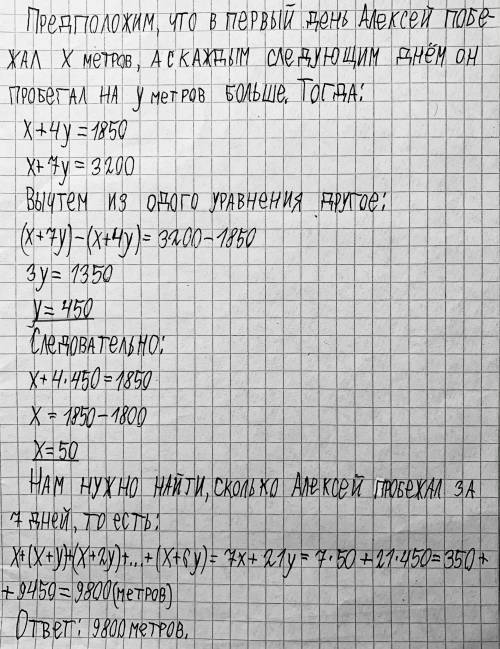 Предположим, что в первый день Алексей побе-
жал x метров, а с каждым следующим днём он
пробегал на y метров больше. Тогда:
x+4y=1850
x+7y=3200
Вычтем из одого уравнения другое:
(x+7y)-(x+4y)=3200-1850
3y=1350
y=450
Следовательно:
x+4·450=1850
x=1850-1800
x=50
Нам нужно найти, сколько Алексей пробежал за
7 дней, то есть:
x+(x+y)+(x+2y)+...+(x+6y)=7x+21y=7·50+21·450=350+
+9450=9800(метров)
Ответ: 9800 метров.